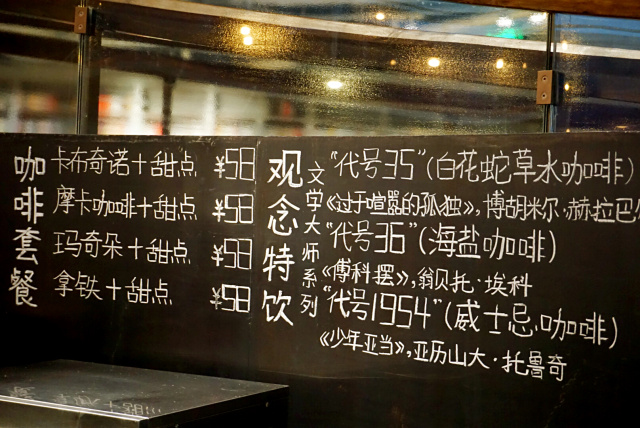 咖啡套餐
卡布奇诺+甜点 ¥58
摩卡咖啡+甜点 ¥58
玛奇朵+甜点 ¥58
拿铁+甜点 ¥58
观念特饮
文学大师系列
“代号35”(白花蛇草水咖啡)
《过于喧嚣的孤独》,博胡米尔·赫拉巴尔
“代号36”(海盐咖啡)
《傅科摆》,翁贝托·埃科
“代号1954”(威士忌咖啡)
《少年亚当》,亚历山大·托鲁奇